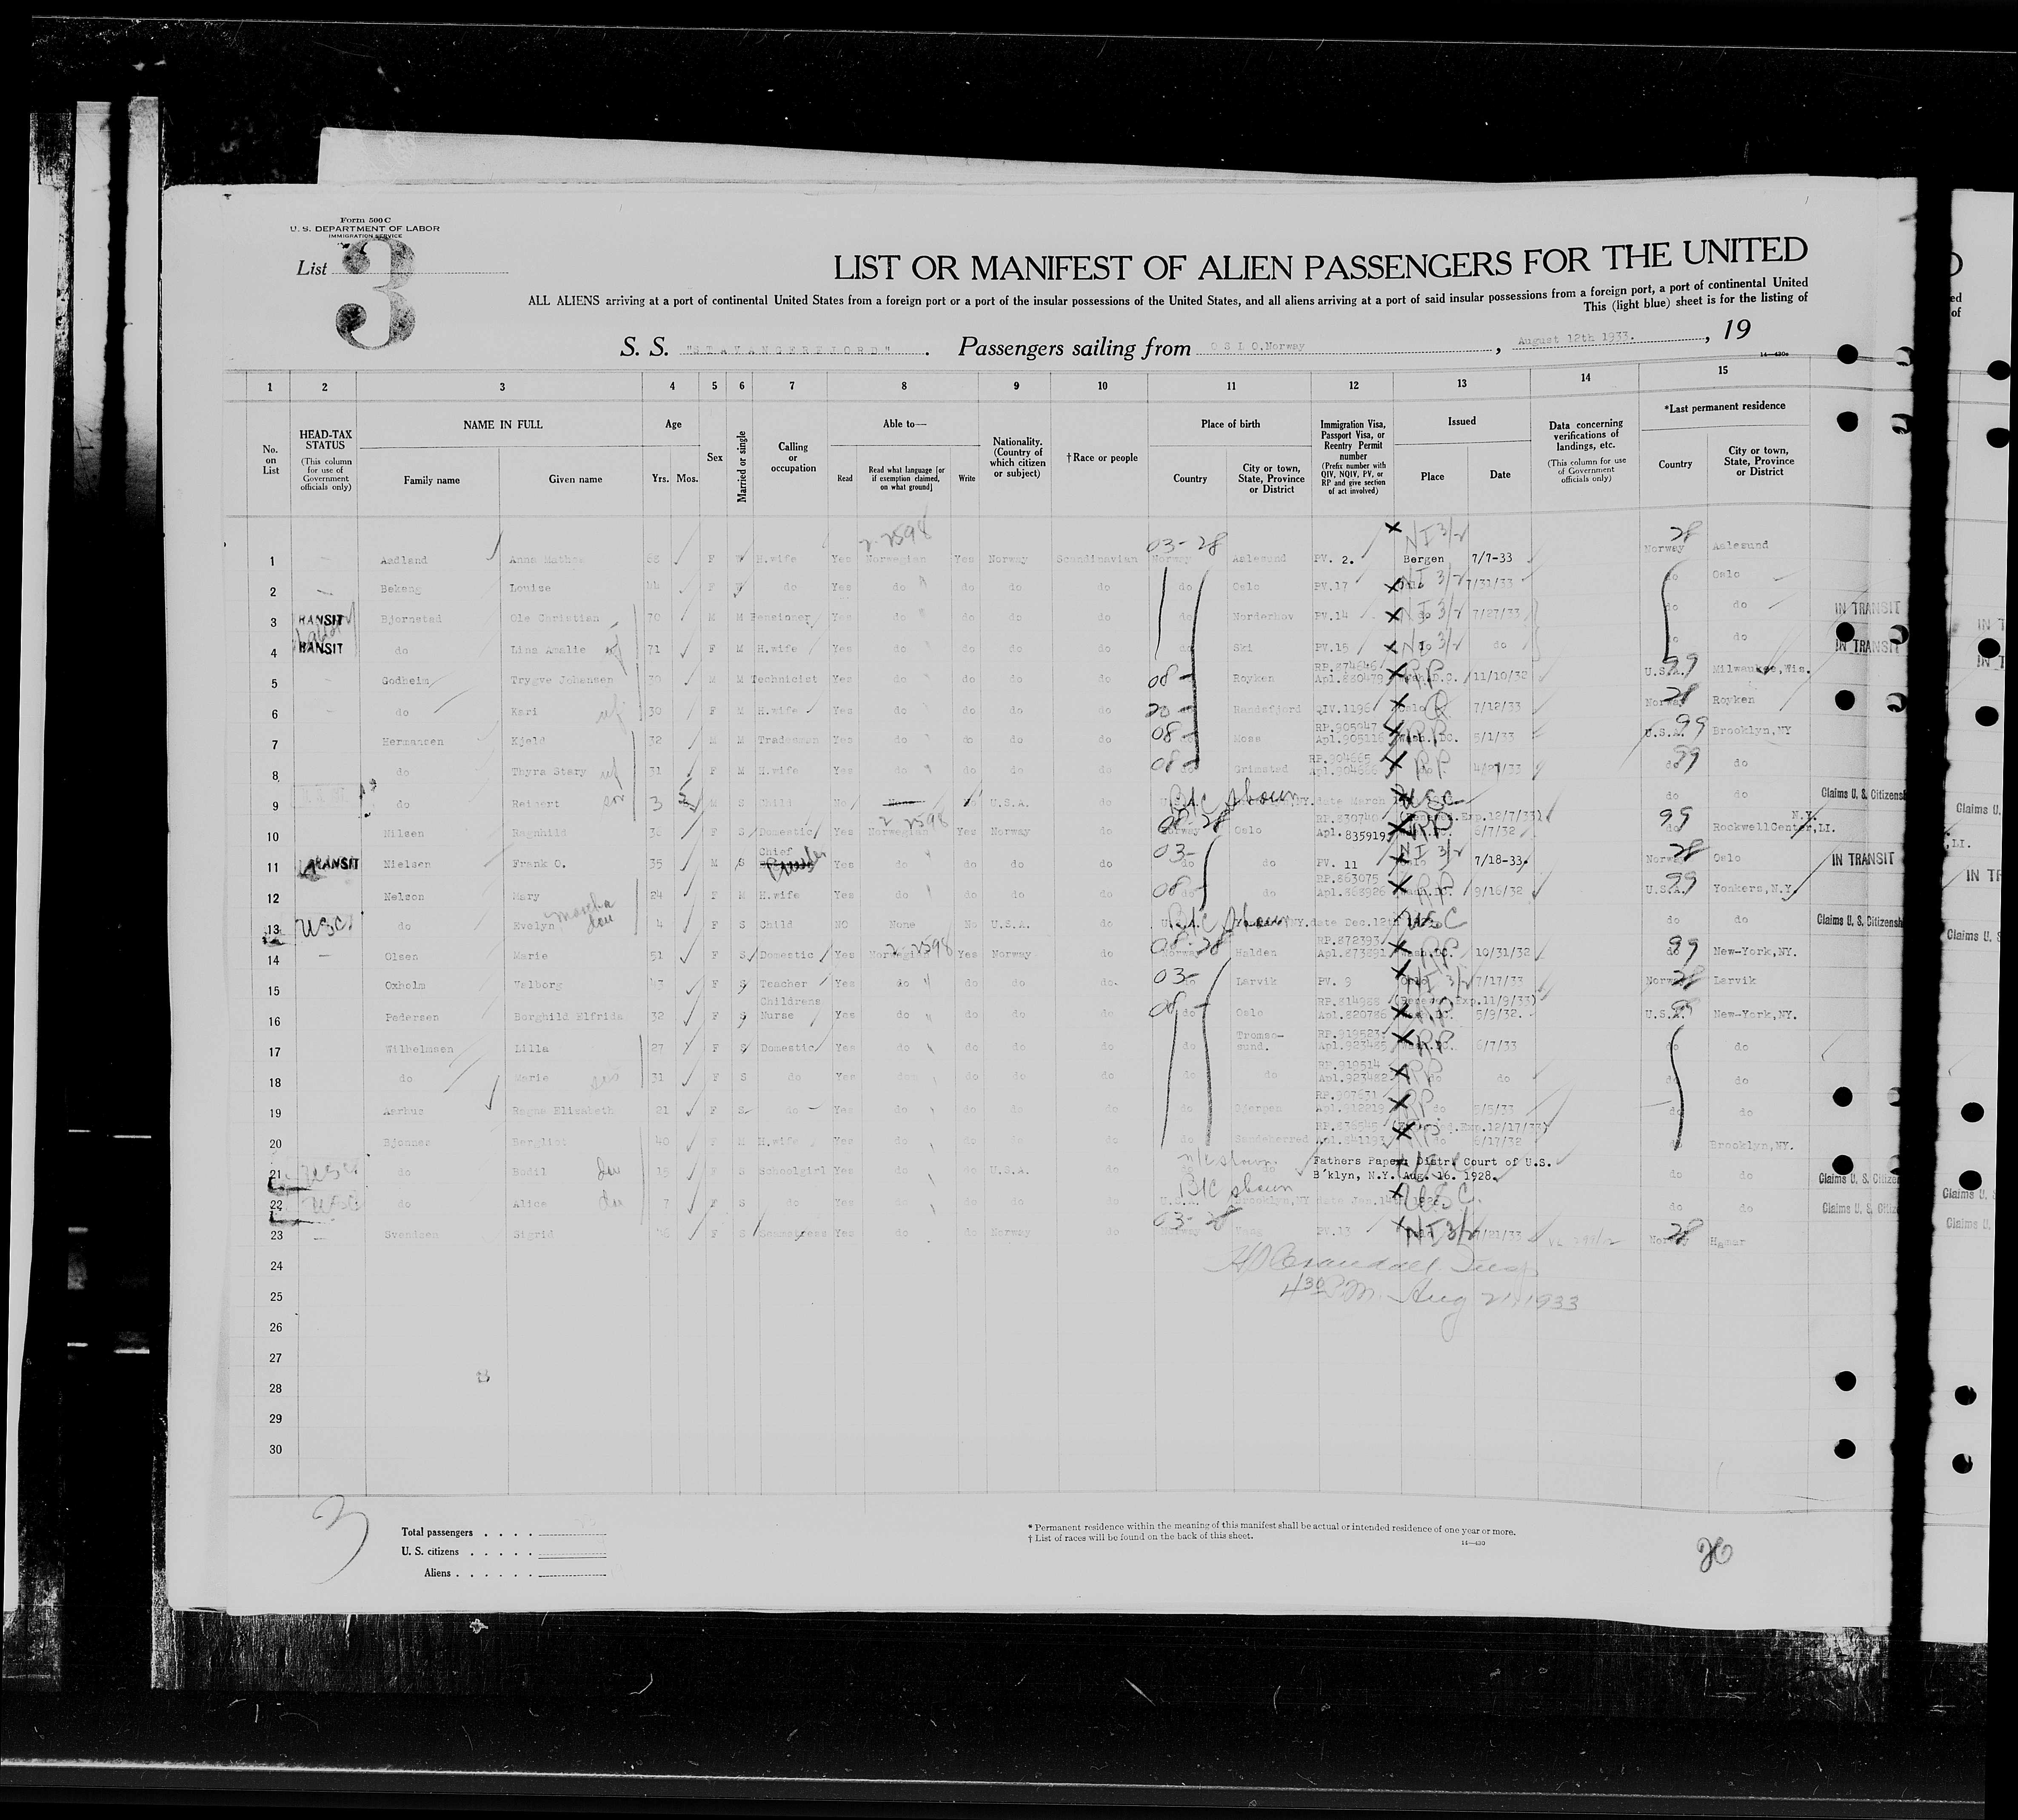 Form 500 C
U. S. DEPARTMENT OF LABOR
IMMIGRATION SERVICE
List 3
LIST OR MANIFEST OF ALIEN PASSENGERS FOR THE UNITED
ALL ALIENS arriving at a port of continental United States from a foreign port or a port of the insular possessions of the United States, and all aliens arriving at a port of said insular possessions from a foreign port, a port of continental United
This (light blue) sheet is for the listing of
S. S. "STAVANGERFJORD". Passengers sailing from OSLO, Norway, August 12th 1933., 19
14—430c
1 2 3 4 5 6 7 8 9 10 11 12 13 14 15
No. on List
HEAD-TAX STATUS (This column for use of Government officials only)
NAME IN FULL Family name Given name
Age Yrs. Mos.
Sex
Married or single
Calling or occupation
Able to— Read Read what language [or if exemption claimed, on what ground] Write
Nationality. (Country of which citizen or subject)
†Race or people
Place of birth Country City or town, State, Province or District
Immigration Visa, Passport Visa, or Reentry Permit number (Prefix number with QIV, NQIV, PV, or RP and give section of act involved)
Issued Place Date
Data concerning verifications of landings, etc. (This column for use of Government officials only)
*Last permanent residence Country City or town, State, Province or District
2-2598 03-28 NI 3/2 28
1 Aadland Anna Mathea 68 F W H.wife Yes Norwegian Yes Norway Scandinavian Norway Aalesund PV. 2. Bergen 7/7-33 Norway Aalesund
2 Bekeng Louise 44 F do Yes do do do do do Oslo PV.17 NI 3/2 7/31/33 do Oslo
3 TRANSIT Bjornstad Ole Christian 70 M M Pensioner Yes do do do do do Norderhov PV.14 NI 3/2 7/27/33 do do IN TRANSIT
4 TRANSIT do Lina Amalie wf 71 F M H.wife Yes do do do do do Ski PV.15 NI 3/2 do do do IN TRANSIT
5 Godheim Trygve Johansen 30 M M Technicist Yes do do do do 08- Royken RP.874646 Apl.880479 RP Wash.D.C. 11/10/32 U.S.A. 99 Milwaukee, Wis.
6 do Kari wf 30 F M H.wife Yes do do do do 20- Randsfjord QIV.1196 Oslo Q 7/12/33 Norway 28 Royken
7 Hermansen Kjeld 32 M M Tradesman Yes do do do do 08- Moss RP.905947 Apl.905116 RP Wash.DC. 5/1/33 U.S.A. 99 Brooklyn,NY
8 do Thyra Stary wf 31 F M H.wife Yes do do do do 08- do Grimstad RP.904665 RP do 99 do
9 do Reinert son 3 M S Child No No U.S.A. do B/C shown NY. date March USC do do Claims U. S. Citizensh
10 Nilsen Ragnhild 36 F S Domestic Yes Norwegian 2-2598 Yes Norway do 08-28 Norway Oslo RP.830740 Apl. 835919 Exp.12/7/33) RP 6/7/32 99 do Rockwell Center, LI. N.Y.
11 TRANSIT Nielsen Frank O. 35 M S Chief Yes do do do do 03- do do PV. 11 NI 3/2 7/18-33. Norway 28 Oslo IN TRANSIT
12 Nelson Mary 24 F M H.wife Yes do do do do 08- do do RP.863075 Apl.868926 RP Wash.DC. 9/16/32 U.S.A. 99 Yonkers,N.Y.
13 USC do Evelyn Martha dau 4 F S Child NO None No U.S.A. do B/C shown NY. date Dec.12th USC do do Claims U. S. Citizensh
14 Olsen Marie 51 F S Domestic Yes Norwegian 2-2598 Yes Norway do 08-28 Norway Halden RP.872393 Apl.873891 RP Wash.DC. 10/31/32 99 do New-York,NY.
15 Oxholm Valborg 43 F S Teacher Yes do do do do. 03- do Larvik PV. 9 Oslo NI 3/2 7/17/33 Norway 28 Larvik
16 Pedersen Borghild Elfrida 32 F S Childrens Nurse Yes do do do do 08- do Oslo RP.814988 Apl.820786 Exp.11/9/33) RP 5/9/32. U.S.A. 99 New-York,NY.
17 Wilhelmsen Lilla 27 F S Domestic Yes do do do do do Tromso-sund. RP.919523 Apl.923485 RP 6/7/33 do do
18 do Marie sis 31 F S do Yes do do do do do do RP.919514 Apl.923482 RP do do do do
19 Aarhus Ragna Elisabeth 21 F S do Yes do do do do do Gjerpen RP.907631 Apl.912219 RP do 5/5/33 do do
20 Bjonnes Bergliot 40 F M H.wife Yes do do do do do Sandeherred RP.836545 Apl.841193 Exp.12/17/33) RP do 6/17/32 Brooklyn,NY.
21 USC do Bodil dau 15 F S Schoolgirl Yes do do U.S.A. do Fathers Paper, Distr. Court of U.S. B'klyn, N.Y. Aug. 16. 1928. do do Claims U. S. Citize
22 USC do Alice dau 7 F S do Yes do do do do B/C shown U.S.A. Brooklyn,NY date Jan. USC do do Claims U. S. Citiz
23 Svendsen Sigrid 46 F S Seamstress Yes do do Norway do 03-28 Norway PV.13 NI 3/2 7/21/33 Norway 28 Hamar
24
25
26
27
28
29
30
Crandall Insp
4 30 P.M. Aug 21, 1933
3
Total passengers . . . .
U. S. citizens . . . . .
Aliens . . . . . .
* Permanent residence within the meaning of this manifest shall be actual or intended residence of one year or more.
† List of races will be found on the back of this sheet.
14—430
26